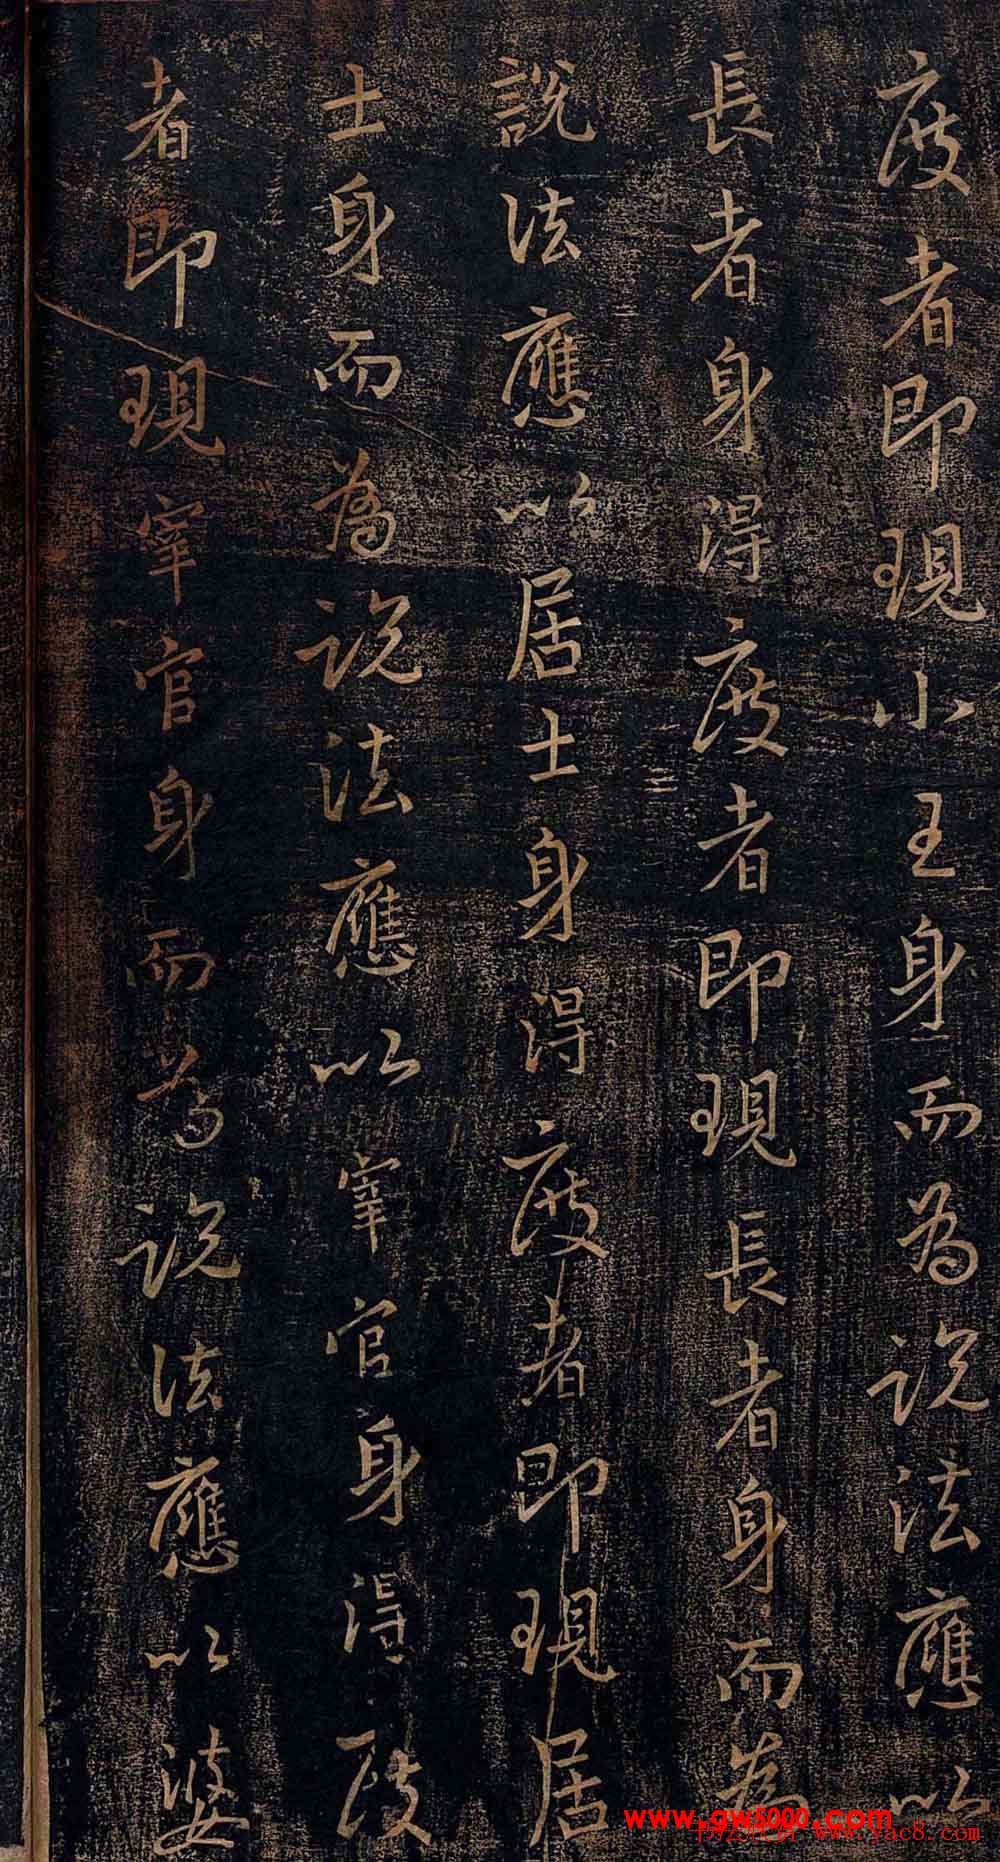 度者即現小王身而為說法應以
長者身得度者即現長者身而為
說法應以居士身得度者即現居
士身而為說法應以宰官身得度
者即現宰官身而為說法應以婆
www.gw5000.com
www.yac8.com